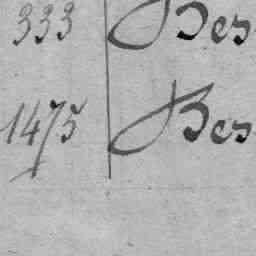 333 Bes
1475 Bes